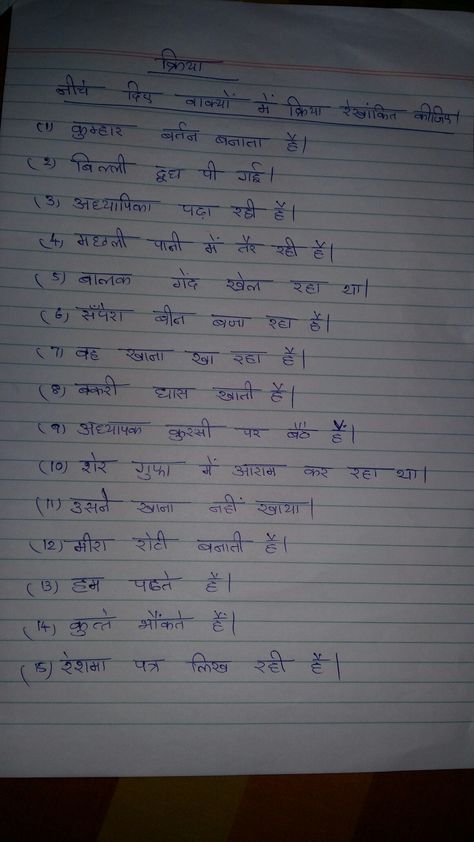 क्रिया
नीचे दिए वाक्यों में क्रिया रेखांकित कीजिए।
(1) कुम्हार बर्तन बनाता है।
(2) बिल्ली दूध पी गई।
(3) अध्यापिका पढ़ा रही है।
(4) मछली पानी में तैर रही है।
(5) बालक गेंद खेल रहा था।
(6) सँपेरा बीन बजा रहा है।
(7) वह खाना खा रहा है।
(8) बकरी घास खाती है।
(9) अध्यापक कुरसी पर बैठे हैं।
(10) शेर गुफा में आराम कर रहा था।
(11) उसने खाना नहीं खाया।
(12) मीरा रोटी बनाती है।
(13) हम पढते हैं।
(14) कुत्ते भौंकते हैं।
(15) रेशमा पत्र लिख रही है।